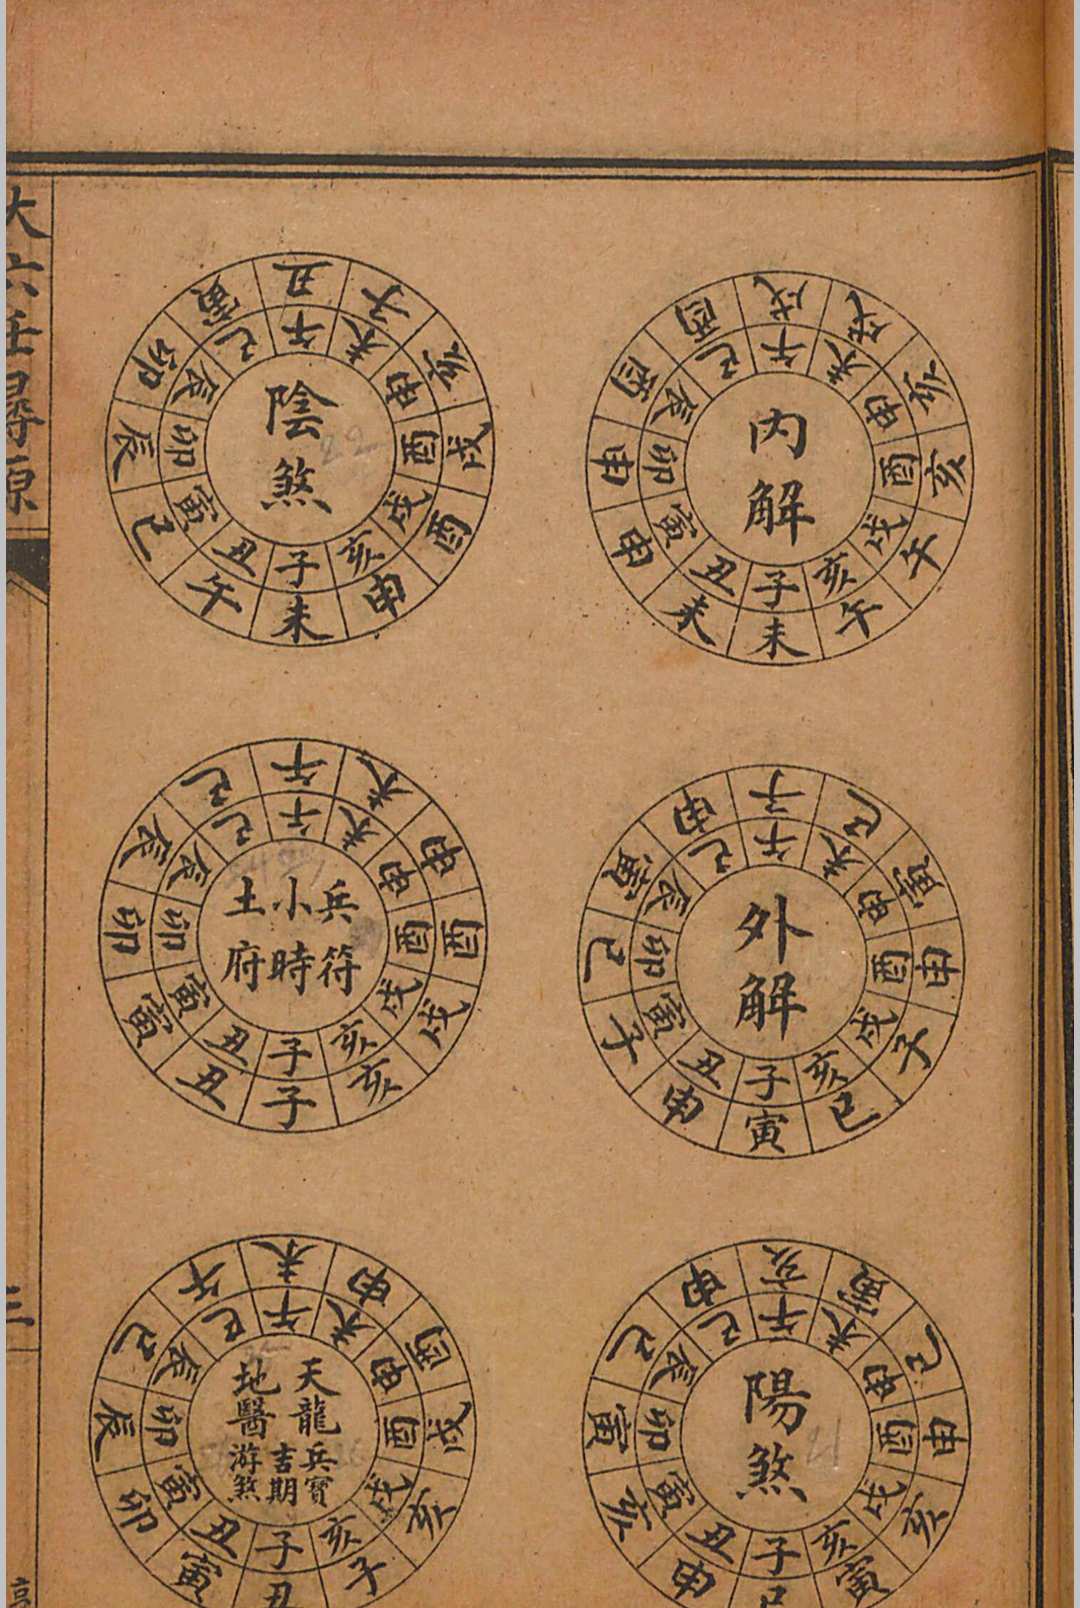 内解
子丑寅卯辰巳午未申酉戌亥
未未申申酉酉戌戌亥亥午午
外解
子丑寅卯辰巳午未申酉戌亥
寅申子巳寅申子巳寅申子巳
陽煞
子丑寅卯辰巳午未申酉戌亥
巳申亥寅巳申亥寅巳申亥寅
陰煞
子丑寅卯辰巳午未申酉戌亥
未午巳辰卯寅丑子亥戌酉申
兵符
小時
土府
子丑寅卯辰巳午未申酉戌亥
子丑寅卯辰巳午未申酉戌亥
天龍
地醫
兵寶
吉期
游煞
子丑寅卯辰巳午未申酉戌亥
丑寅卯辰巳午未申酉戌亥子
大六壬尋原
三